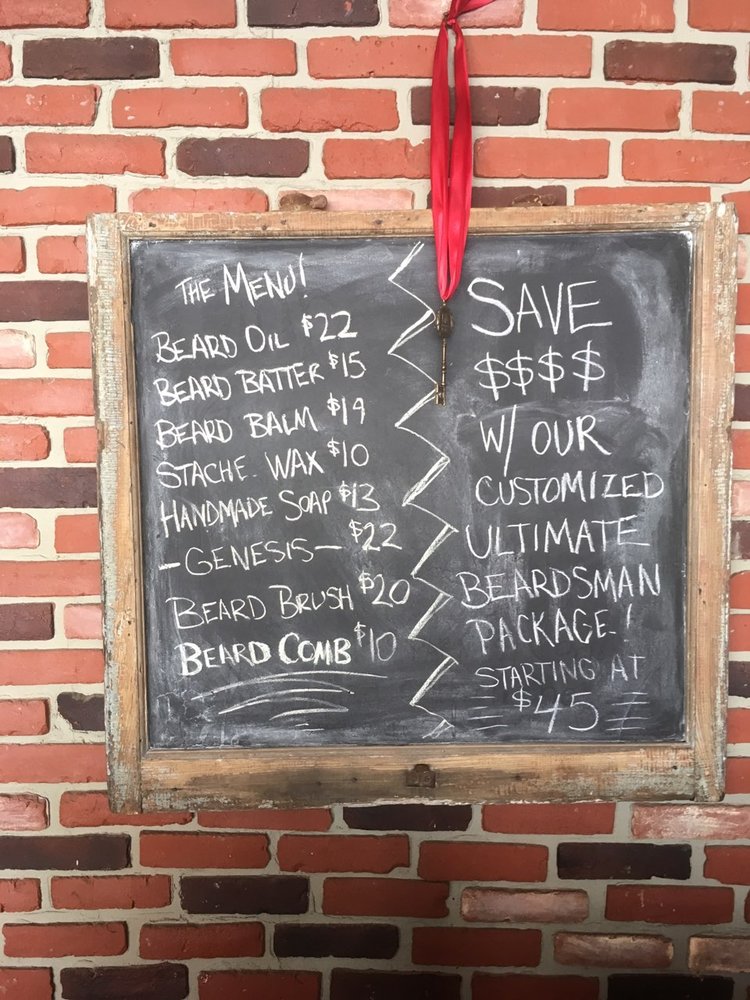 THE MENU!
BEARD OIL $22
BEARD BATTER $15
BEARD BALM $19
STACHE WAX $10
HANDMADE SOAP $13
-GENESIS- $22
BEARD BRUSH $20
BEARD COMB $10
SAVE
$$$$
W/ OUR
CUSTOMIZED
ULTIMATE
BEARDSMAN
PACKAGE!
STARTING AT
$45